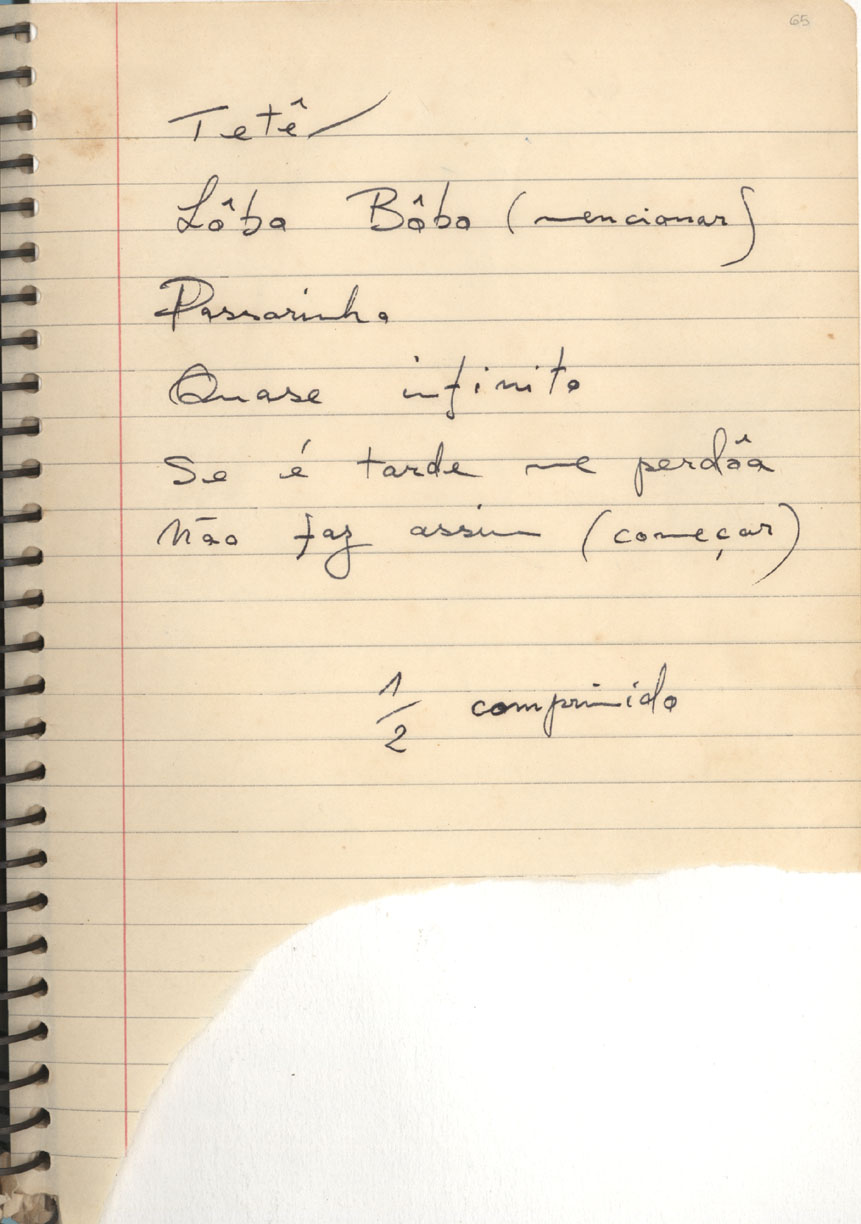 65
Tetê
Lôbo Bôbo (mencionar)
Passarinho
Quase infinito
Se é tarde me perdôa
Não faz assim (começar)
1/2 comprimido